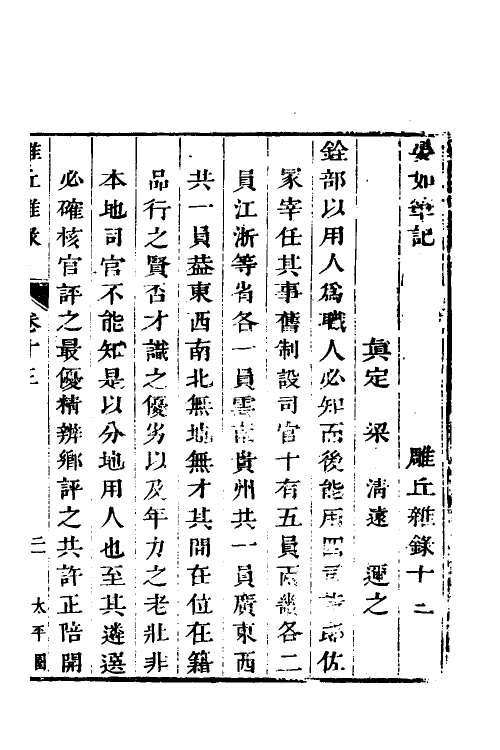 晏如筆記　雕丘雜錄十二
真定　梁　清遠　邇之
銓部以用人爲職人必知而後能用四司諸郎佐
冢宰任其事舊制設司官十有五員兩畿各二
員江浙等省各一員雲南貴州共一員廣東西
共一員葢東西南北無地無才其間在位在籍
品行之賢否才識之優劣以及年力之老壯非
本地司官不能知是以分地用人也至其遴選
必確核官評之最優精辨鄉評之共許正陪開
雕丘雜錄　卷十三　二　太平園